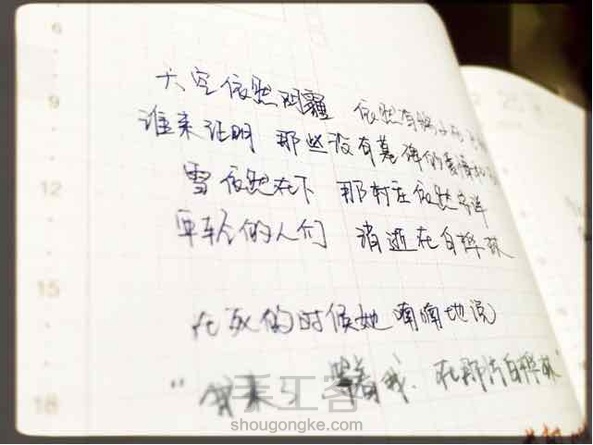 6
天空依然阴霾 依然有鸽子在
9
谁来证明 那些没有墓碑的爱情和
雪依然在下 那村庄依然安详
年轻的人们 消逝在白桦林
15
在死的时候她喃喃地说
"我来了 等着我. 在那片白桦林"
18
手工客
shougongke.com